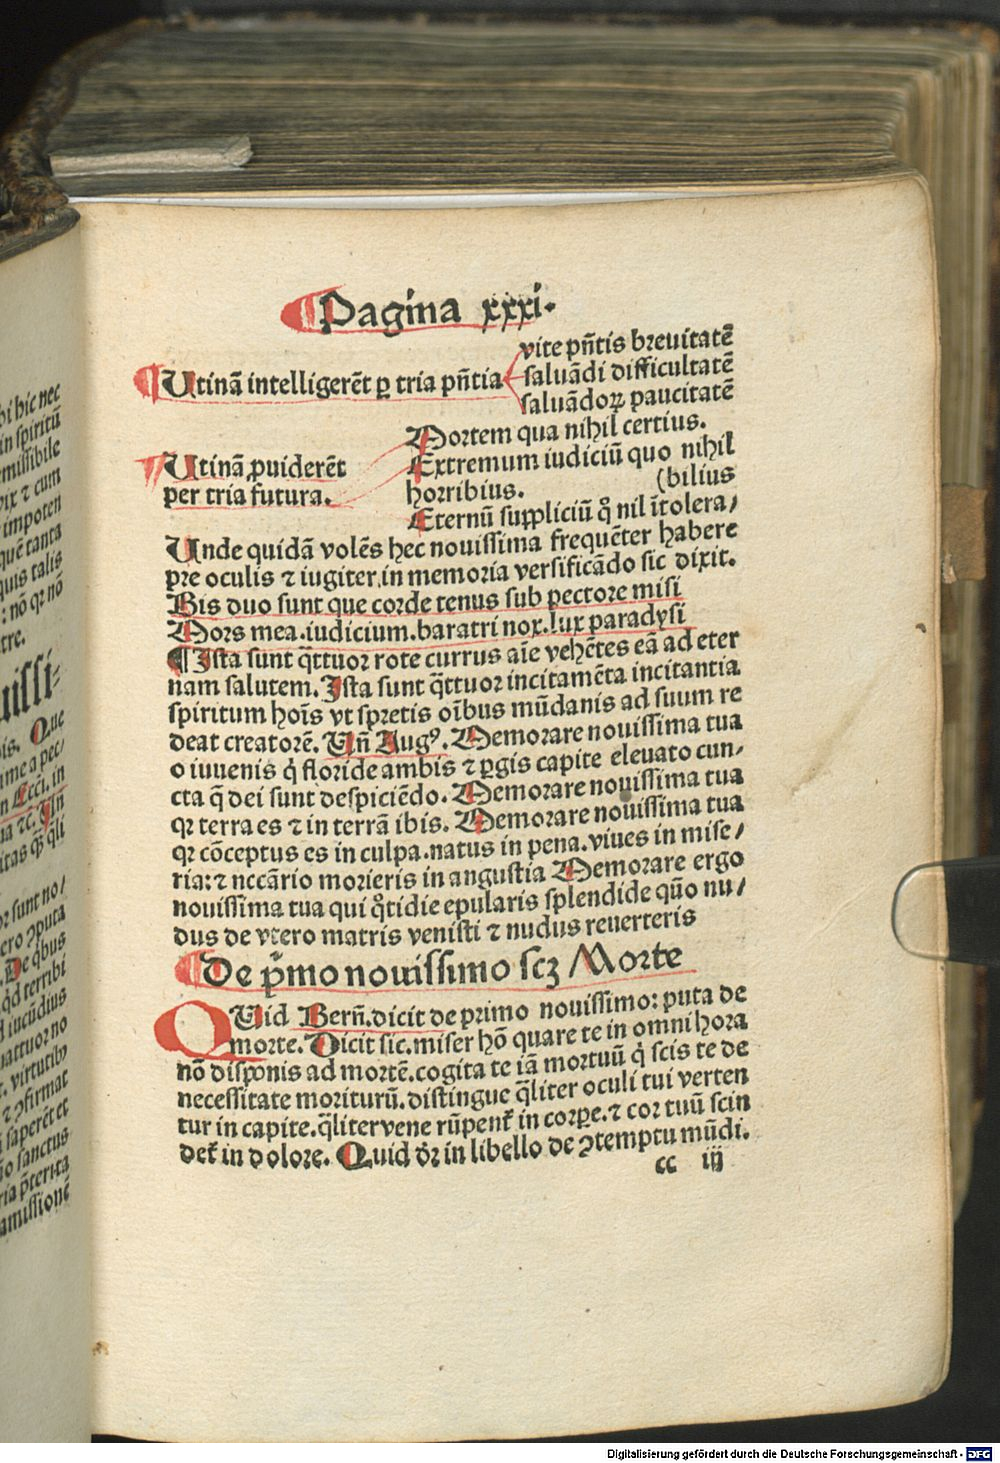 Pagina xxxi.
vite pn̄tis breuitatē
Utinā intelligerēt ꝑ tria pn̄tia saluādi difficultatē
saluādoꝝ paucitatē
Mortem qua nihil certius.
Utinā ꝓuiderēt Extremum iudiciū quo nihil
per tria futura. horribius. (bilius
Eternū suppliciū qͦ nil ītolera/
Unde quidā volēs hec nouissima frequēter habere
pre oculis ⁊ iugiter in memoria versificādo sic dixit.
Bis duo sunt que corde tenus sub pectore misi
Mors mea. iudicium. baratri nox. lux paradysi
¶ Ista sunt q̄ttuor rote currus aīe vehētes eā ad eter
nam salutem. Ista sunt q̄ttuor incitamēta incitantia
spiritum hoīs vt spretis oībus mūdanis ad suum re
deat creatorē. Un̄ Augꝰ. Memorare nouissima tua
o iuuenis q̇ floride ambis ⁊ ꝑgis capite eleuato cun/
cta q̄ dei sunt despiciēdo. Memorare nouissima tua
qꝛ terra es ⁊ in terrā ibis. Memorare nouissima tua
qꝛ cōceptus es in culpa. natus in pena. viues in mise/
ria: ⁊ nccārio morieris in angustia Memorare ergo
nouissima tua qui qͦtidie epularis splendide qūo nu/
dus de vtero matris venisti ⁊ nudus reuerteris
De pͥmo nouissimo scꝫ Morte
QUid Bern̄. dicit de primo nouissimo: puta de
morte. Dicit sic. miser hō quare te in omni hora
nō disponis ad mortē. cogita te iā mortuū q̇ scis te de
necessitate moriturū. distingue q̄liter oculi tui verten
tur in capite. q̄liter vene rūpent᷑ in corpe. ⁊ cor tuū scin
det᷑ in dolore. Quid dr̄ in libello de ꝯtemptu mūdi.
cc iij
Digitalisierung gefördert durch die Deutsche Forschungsgemeinschaft - DFG